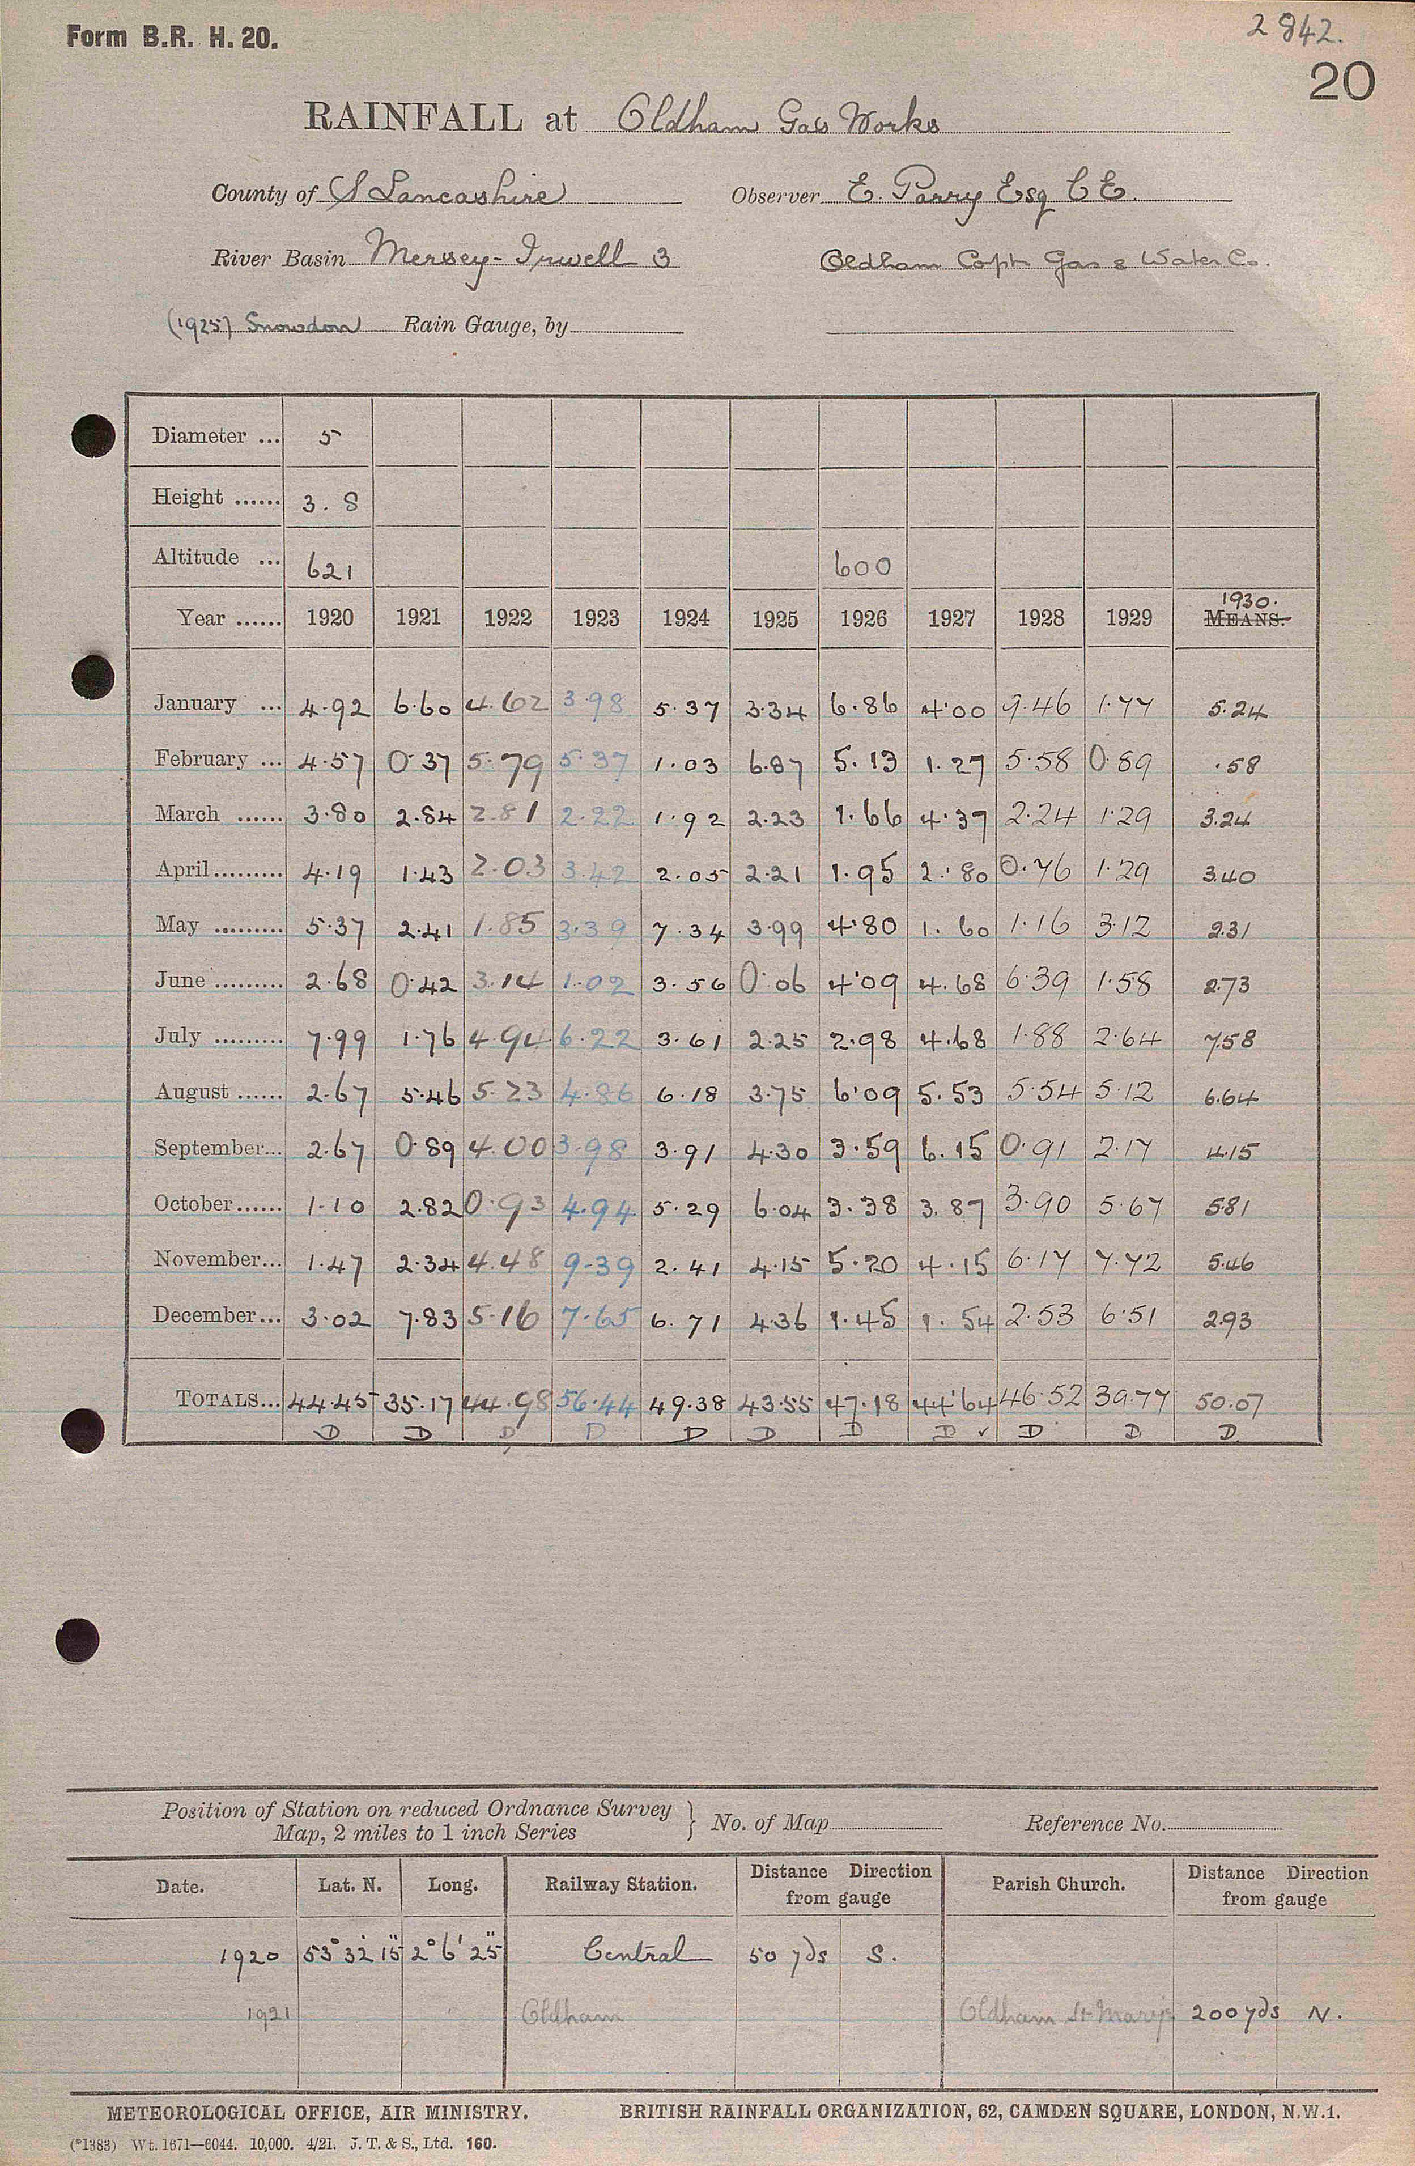 Form B.R. H. 20.
2842.
20
RAINFALL at Oldham Gas Works
County of S Lancashire Observer E. Parry Esq C E.
River Basin Mersey-Irwell 3 Oldham Corptn Gas & Water Co.
(1925) Snowdon Rain Gauge, by
Diameter ... 5
Height ...... 3.8
Altitude ... 621 600
1930.
Year ...... 1920 1921 1922 1923 1924 1925 1926 1927 1928 1929 MEANS.
January ... 4.92 6.60 4.62 3.98 5.37 3.34 6.86 4.00 9.46 1.77 5.24
February ... 4.57 0.37 5.79 5.37 1.03 6.87 5.13 1.27 5.58 0.89 .58
March ...... 3.80 2.84 2.81 2.22 1.92 2.23 1.66 4.37 2.24 1.29 3.24
April ......... 4.19 1.43 2.03 3.42 2.05 2.21 1.95 2.80 0.76 1.29 3.40
May ......... 5.37 2.41 1.85 3.39 7.34 3.99 4.80 1.60 1.16 3.12 2.31
June ......... 2.68 0.42 3.14 1.02 3.56 0.06 4.09 4.68 6.39 1.58 2.73
July ......... 7.99 1.76 4.94 6.22 3.61 2.25 2.98 4.68 1.88 2.64 7.58
August ...... 2.67 5.46 5.23 4.86 6.18 3.75 6.09 5.53 5.54 5.12 6.64
September... 2.67 0.89 4.00 3.98 3.91 4.30 3.59 6.15 0.91 2.17 4.15
October...... 1.10 2.82 0.93 4.94 5.29 6.04 3.38 3.87 3.90 5.67 5.81
November... 1.47 2.34 4.48 9.39 2.41 4.15 5.20 4.15 6.17 7.72 5.46
December... 3.02 7.83 5.16 7.65 6.71 4.36 1.45 1.54 2.53 6.51 2.93
TOTALS... 44.45 35.17 44.98 56.44 49.38 43.55 47.18 44.64 46.52 39.77 50.07
D D D D D D D D ✓ D D D
Position of Station on reduced Ordnance Survey
Map, 2 miles to 1 inch Series } No. of Map Reference No.
Date. Lat. N. Long. Railway Station. Distance Direction from gauge Parish Church. Distance Direction from gauge
1920 53° 32' 15" 2° 6' 25" Central 50 yds S.
1921 Oldham Oldham St Mary's 200 yds N.
METEOROLOGICAL OFFICE, AIR MINISTRY. BRITISH RAINFALL ORGANIZATION, 62, CAMDEN SQUARE, LONDON, N.W.1.
(*1383) Wt. 1671—6044. 10,000. 4/21. J. T. & S., Ltd. 160.